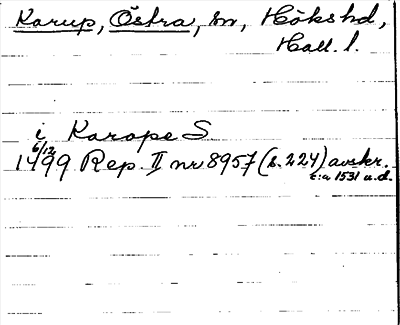 Karup, Östra, sn, Hökshd,
Hall. l.
i Karape S.
6/12
1499 Rep. II nr 8957 (s. 224) avskr.
c:a 1531 u.d.